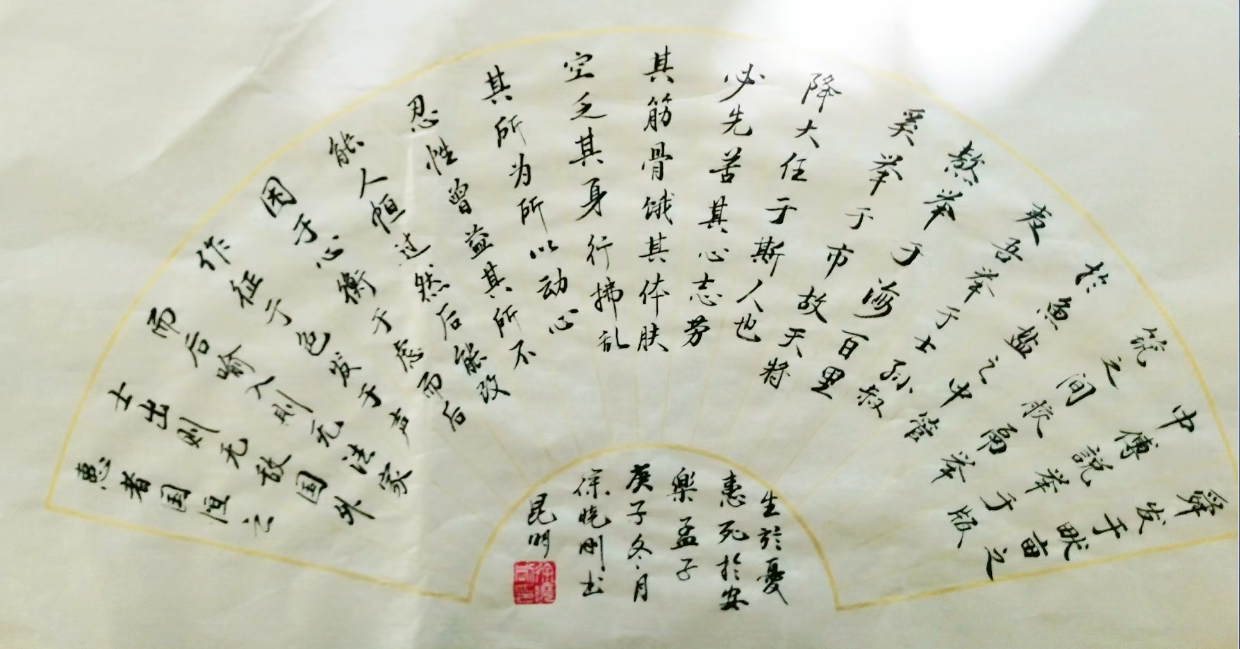 舜发于畎亩之
中傅説举于版
筑之间胶鬲举
於魚盐之中管
夷吾举于士孙叔
敖举于海百里
奚举于市故天将
降大任于斯人也
必先苦其心志劳
其筋骨饿其体肤
空乏其身行拂乱
其所为所以动心
忍性曾益其所不
能人恒过然后能改
困于心衡于虑而后
作征于色发于声
而后喻入则无法家
士出则无敌国外
患者国恒亡
生於憂
患死於安
樂孟子
庚子冬月
徐晓刚书
昆明